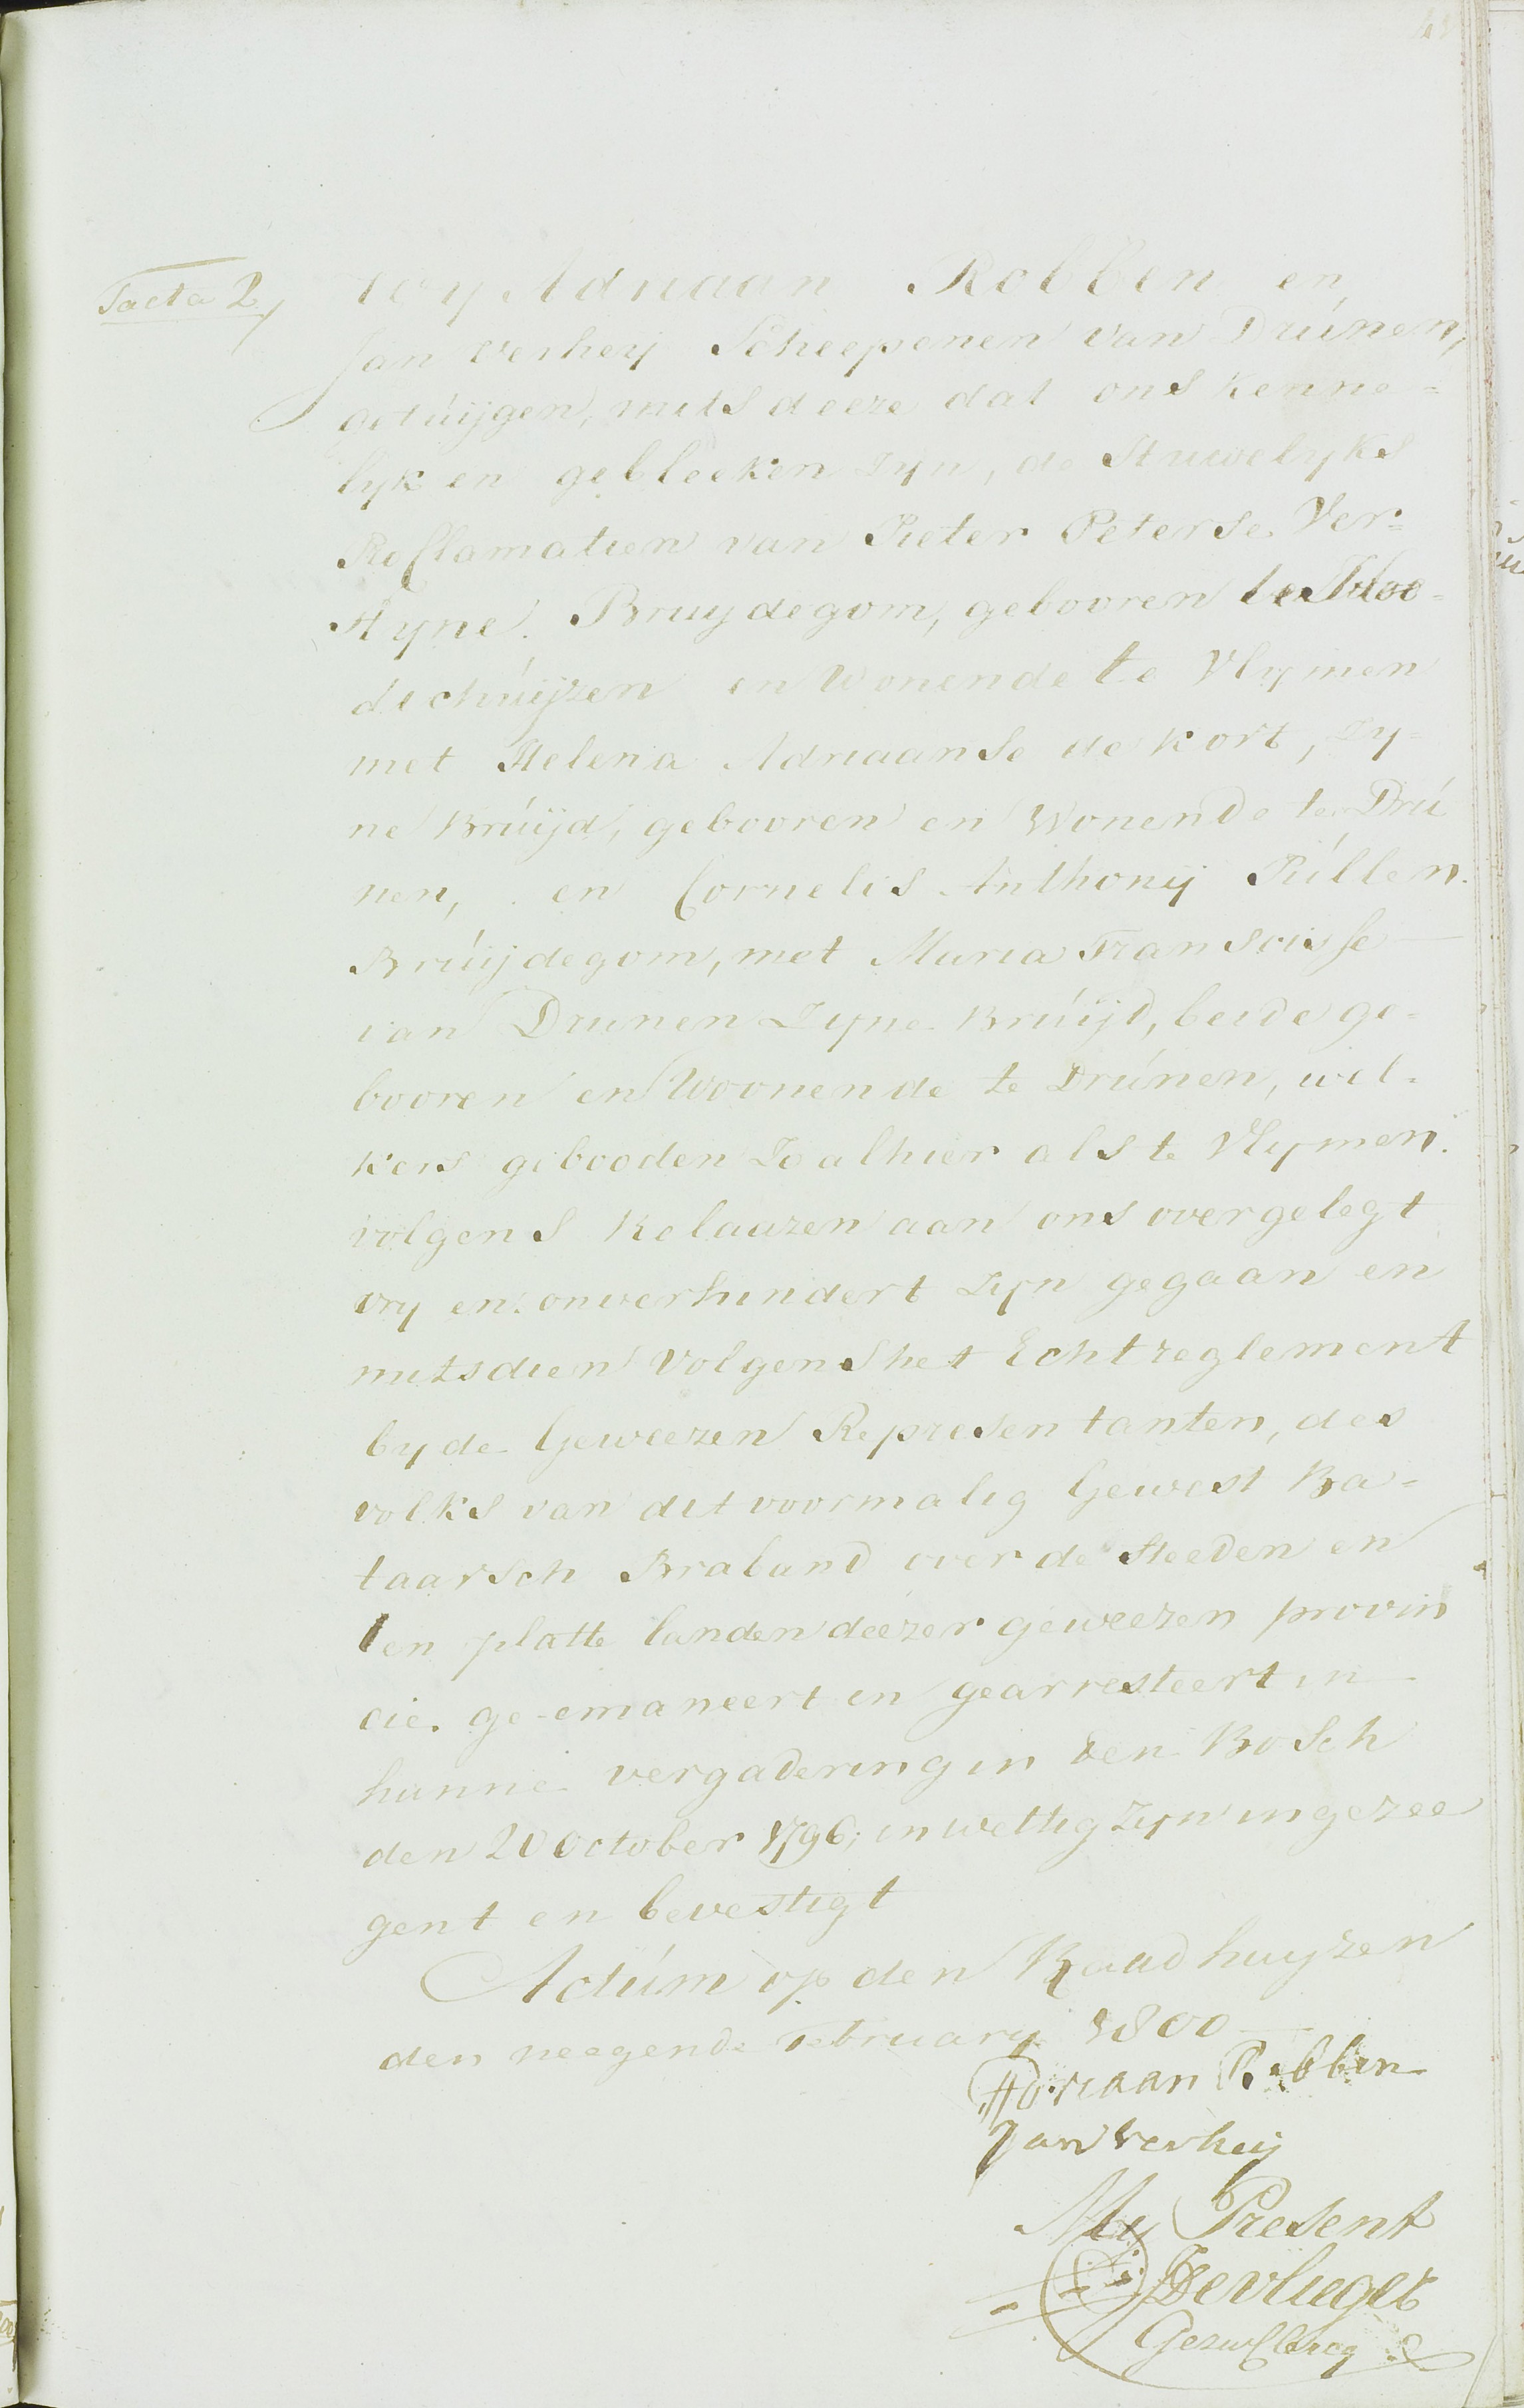 Tacta 2/
Wy Adriaan Robben en
Jan Verhey Scheepenen van Drúnen,
getúijgen, mits deeze dat ons kenne=
lyk en gebleeken Zyn, de Huwelyks
Proclamatien van Pieter Peterse Ver=
Hyne. Bruydegom, gebooren te
dichúijzen en Wonende te Vlymen
met Helena Adriaanse de Kort, Zy=
ne Brúijd, gebooren en Wonende te Drú
nen, en Cornelis Anthonij Púllen.
Brúijdegom, met Maria Fransoisse
van Drunen Zyne Brúijd, beide ge=
booren en Woonende te Drúnen, wel=
kers gebooden Zo alhier als te Vlymen.
volgens Relaazen aan ons overgelegt
vry en onverhindert Zyn gegaan en
mitsdien Volgens het Echtreglement
by de Geweezen Representanten, des
volks van dit voormalig Gewest Ba=
taafsch Braband over de Steeden en
ten platte landen deezer geweezen provin
cie. ge-emaneert en gearresteert in
hunne vergadering in den Bosch
den 20 October 1796, in wettig Zyn ingezee
gent en bevestigt
Actúm op den Raadhuyzen
den neegende February 1800
Adriaan Robben
Jan Verheij
My Present
Devlieger